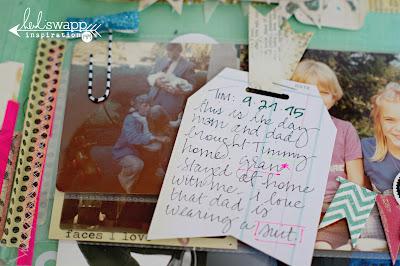 heidi swapp
inspiration
DATE
TIM: 9.21.75
this is the day
mom and dad
brought Timmy
home. Gran
stayed at home
with me. I love
that dad is
wearing a suit.
faces I love